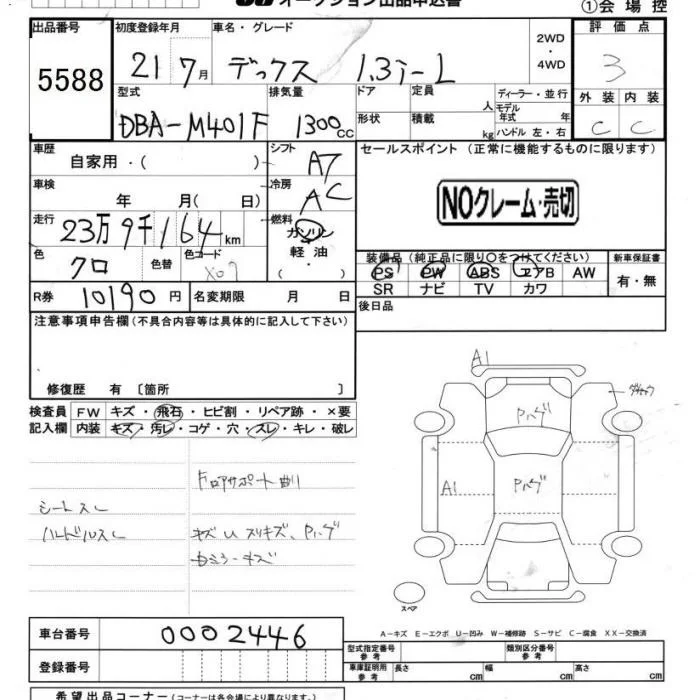 オークション出品申込書
①会場控
出品番号 初度登録年月 車名・グレード 2WD・4WD 評価点
5588 21 7月 デックス 1.3i-L 3
型式 排気量 ドア 定員 人 ディーラー・並行 外装 内装
DBA-M401F 1300cc 形状 積載 kg モデル年式 年 ハンドル 左・右 C C
車歴 自家用・( ) シフト AT セールスポイント (正常に機能するものに限ります)
車検 年 月( 日) 冷房 AC
NOクレーム・売切
走行 23万9千164km 燃料 ガソリン 軽油 ( ・ )
色 クロ 色替 色コード X07
装備品 (純正品に限り○をつけてください) 新車保証書
PS PW ABS エアB AW 有・無
SR ナビ TV カワ
R券 10190円 名変期限 月 日
後日品
注意事項申告欄(不具合内容等は具体的に記入して下さい)
修復歴 有 〔箇所 〕
検査員 FW キズ・飛石・ヒビ割・リペア跡・×要
記入欄 内装 キズ・汚レ・コゲ・穴・スレ・キレ・破レ
A1
Pハゲ
フロアサポート曲り
A1 Pハゲ
シートスレ
ハンドルスレ キズU スリキズ、Pハゲ
スペア
A-キズ E-エクボ U-凹み W-補修跡 S-サビ C-腐食 XX-交換済
車台番号 0002446
型式指定番号 参考 類別区分番号 参考
登録番号
車庫証明用 参考 長さ cm 幅 cm 高さ cm
希望出品コーナー(コーナーは各会場により異なります。)